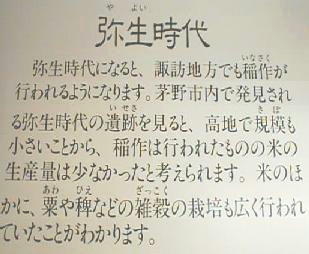 弥生時代
弥生時代になると、諏訪地方でも稲作が
行われるようになります。茅野市内で発見され
る弥生時代の遺跡を見ると、高地で規模も
小さいことから、稲作は行われたものの米の
生産量は少なかったと考えられます。米のほ
かに、粟や稗などの雑穀の栽培も広く行われ
ていたことがわかります。